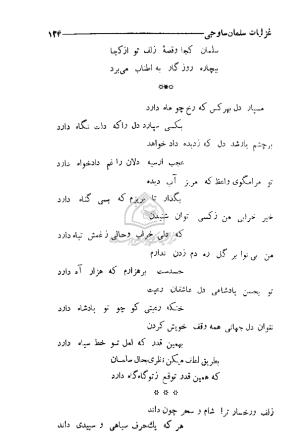 غزلیات سلمان ساوجی ۱۲۴
سلمان کجا و قصهٔ زلف تو از کجا
بیچاره روزگار به اطناب می‌برد
***
مسپار دل بهر کس که رخ چو ماه دارد
بکسی سپار دل را که دلت نگاه دارد
برخشم باشد دل که زدیده داد خواهد
عجب ار سیه دلان را غم دادخواه دارد
تو مرا مگوی واعظ که مریز آب دیده
بگذار تا بریزم که بسی گناه دارد
خبر خرابی من زکسی توان شنیدن
که دلی خراب و حالی زغمش تباه دارد
من بی‌نوا بر گل ره دم زدن ندارم
هزارم که هزار آه دارد
تو بحسن پادشاهی دل عاشقان رعیت
خنک رعیتی کو چو تو پادشاه دارد
نتوان دل جهانی همه وقف خویش کردن
بهمین قدر که لعل تو خط سیاه دارد
بطریق لطف میکن نظری بحال سلمان
که همین قدر توقع زتو گاه گاه دارد
***
زلف و رخسار ترا شام و سحر چون داند
هر که یک حرف سیاهی و سپیدی داند